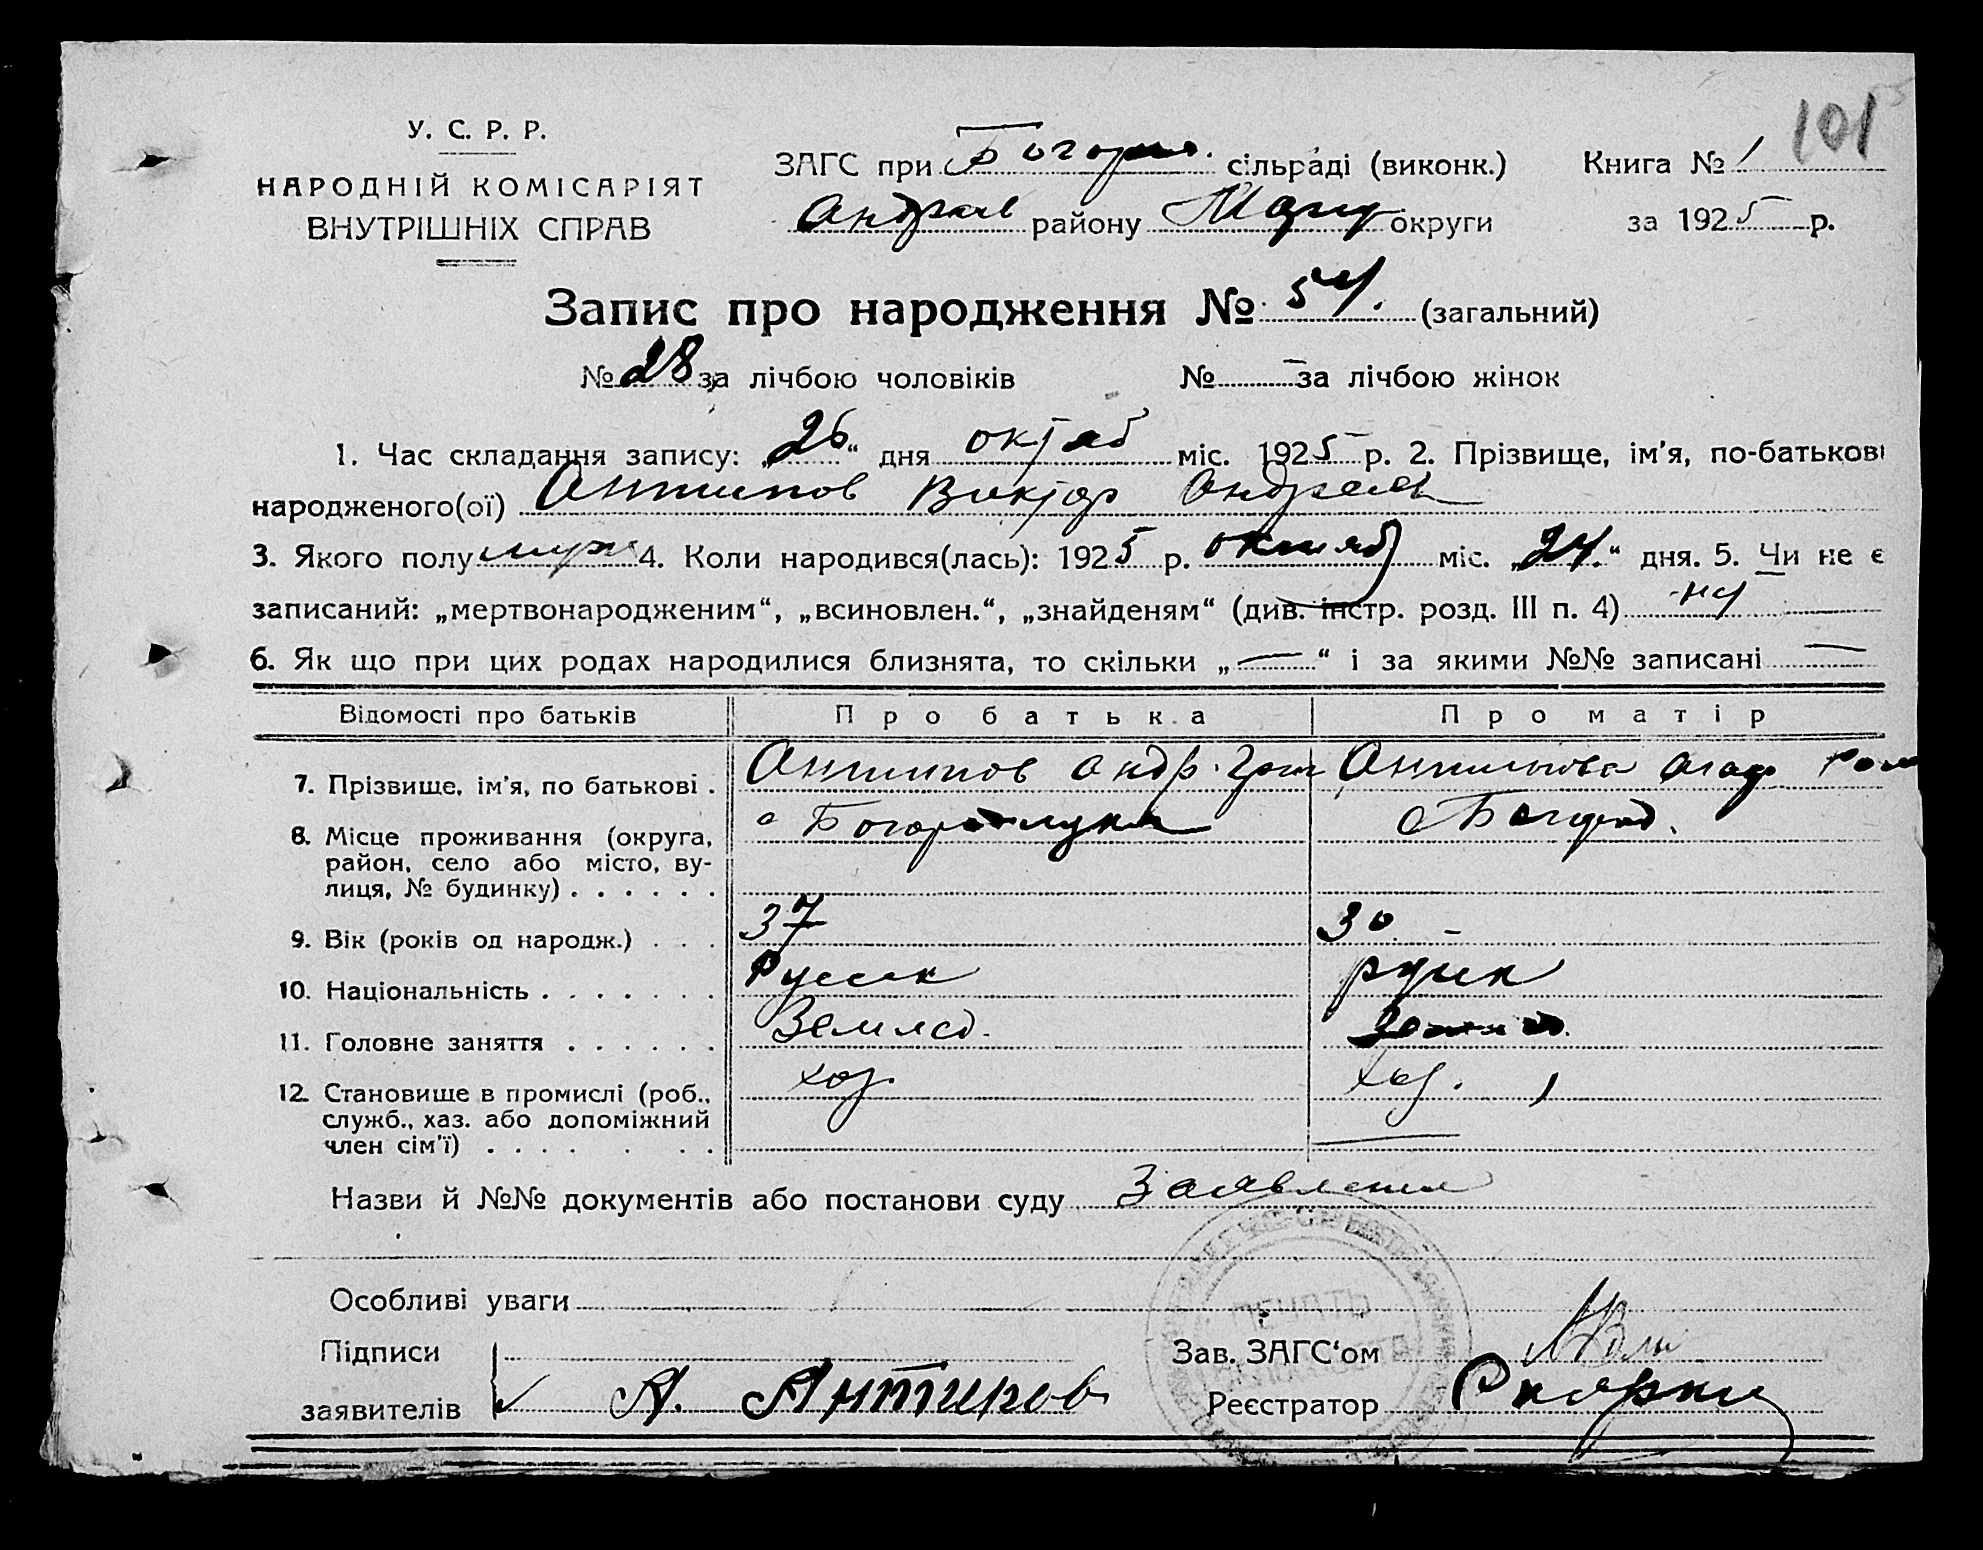 101
У. С. Р. Р.
НАРОДНІЙ КОМІСАРІЯТ
ВНУТРІШНІХ СПРАВ
ЗАГС при сільраді (виконк.) Книга № 1
району округи за 1925 р.
Запис про народження № 54. (загальний)
№ 28 за лічбою чоловіків № — за лічбою жінок
1. Час складання запису: „26“ дня міс. 1925 р. 2. Прізвище, ім'я, по-батькові
народженого(ої) Антипов Виктор Андреев
3. Якого полу муж 4. Коли народився(лась): 1925 р. октяб міс. „24.“ дня. 5. Чи не є
записаний: „мертвонародженим“, „всиновлен.“, „знайденям“ (див. інстр. розд. III п. 4)
6. Як що при цих родах народилися близнята, то скільки „—“ і за якими №№ записані —
Відомості про батьків Про батька Про матір
7. Прізвище, ім'я, по батькові . Антипов Андр. Григ Антипова Агаф Ром
8. Місце проживання (округа,
район, село або місто, ву-
лиця, № будинку) . . . . . .
9. Вік (років од народж.) . . . 37 30
10. Національність . . . . . . . Русск
11. Головне заняття . . . . . . Землед.
12. Становище в промислі (роб.,
служб., хаз. або допоміжний
член сім'ї) . . . . . . . хоз. хоз.
Назви й №№ документів або постанови суду Заявление
Особливі уваги
Підписи Зав. ЗАГС'ом
заявителів А. Антипов Реєстратор
ПЕЧАТЬ